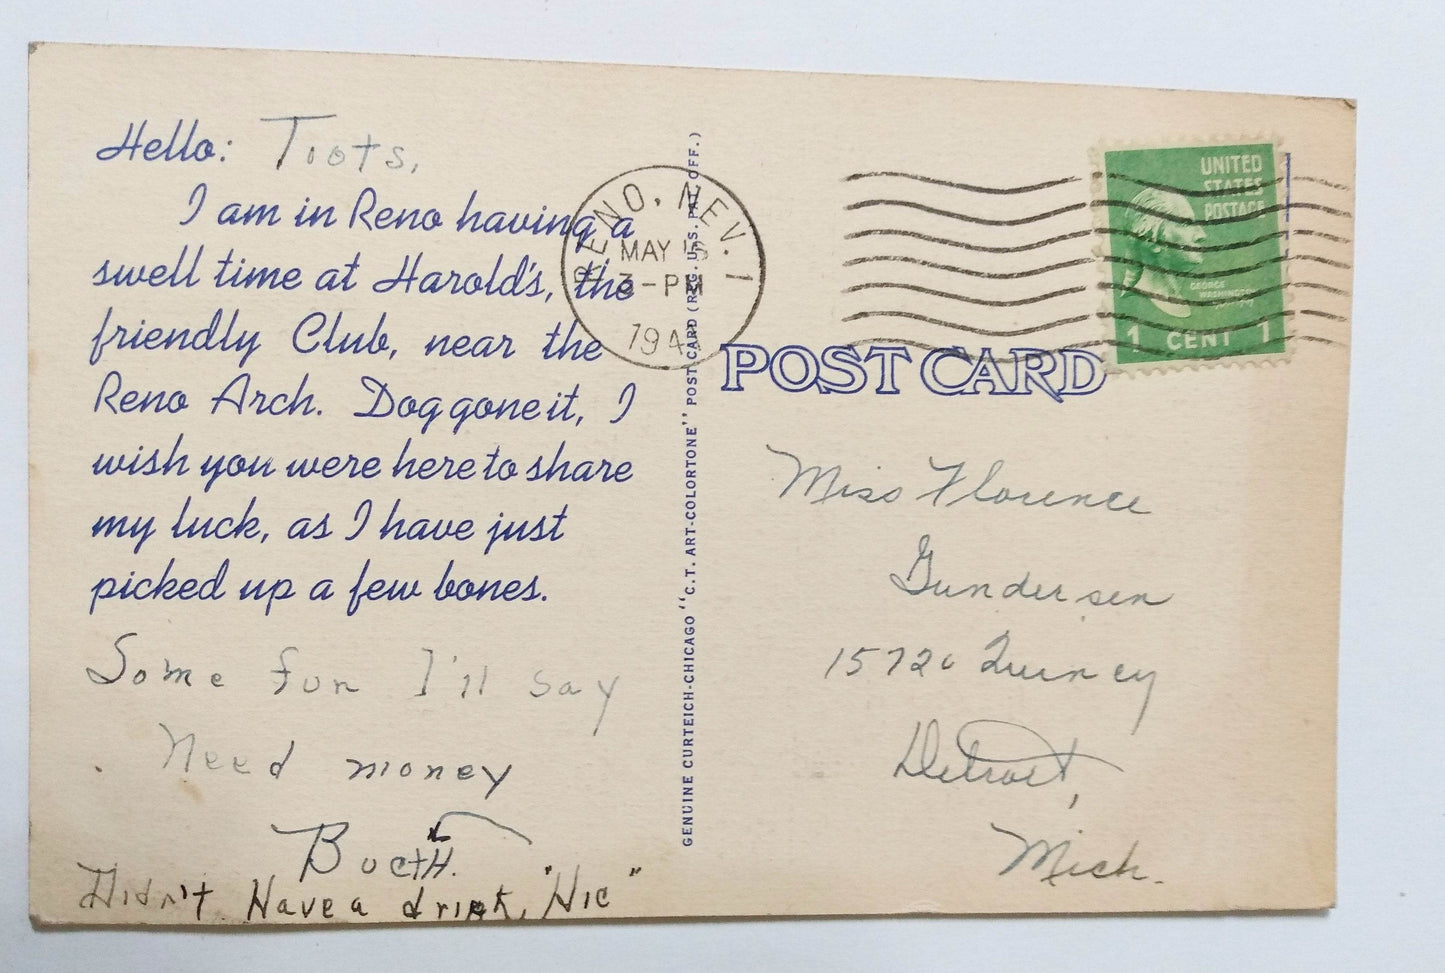 Hello: Toots,
I am in Reno having a
swell time at Harold's, the
friendly Club, near the
Reno Arch. Doggone it, I
wish you were here to share
my luck, as I have just
picked up a few bones.
Some fun I'll say
Need money
Didn't Have a drink, "Hic"
GENUINE CURTEICH-CHICAGO "C.T. ART-COLORTONE" POST CARD (REG. U.S. PAT. OFF.)
RENO, NEV. 1
MAY 15
3-PM
UNITED
STATES
POSTAGE
GEORGE
WASHINGTON
1 CENT 1
POST CARD
Miss Florence
Gundersen
Quincy
Detroit,
Mich.